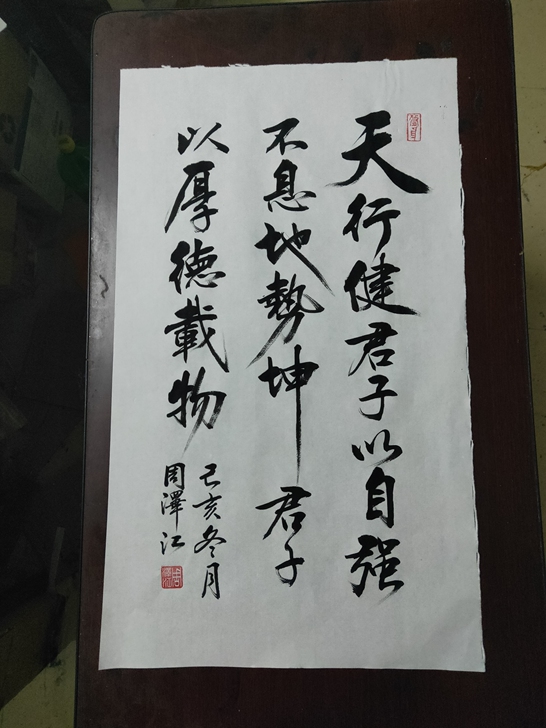 天行健君子以自强
不息地勢坤君子
以厚德載物
己亥冬月
周澤江